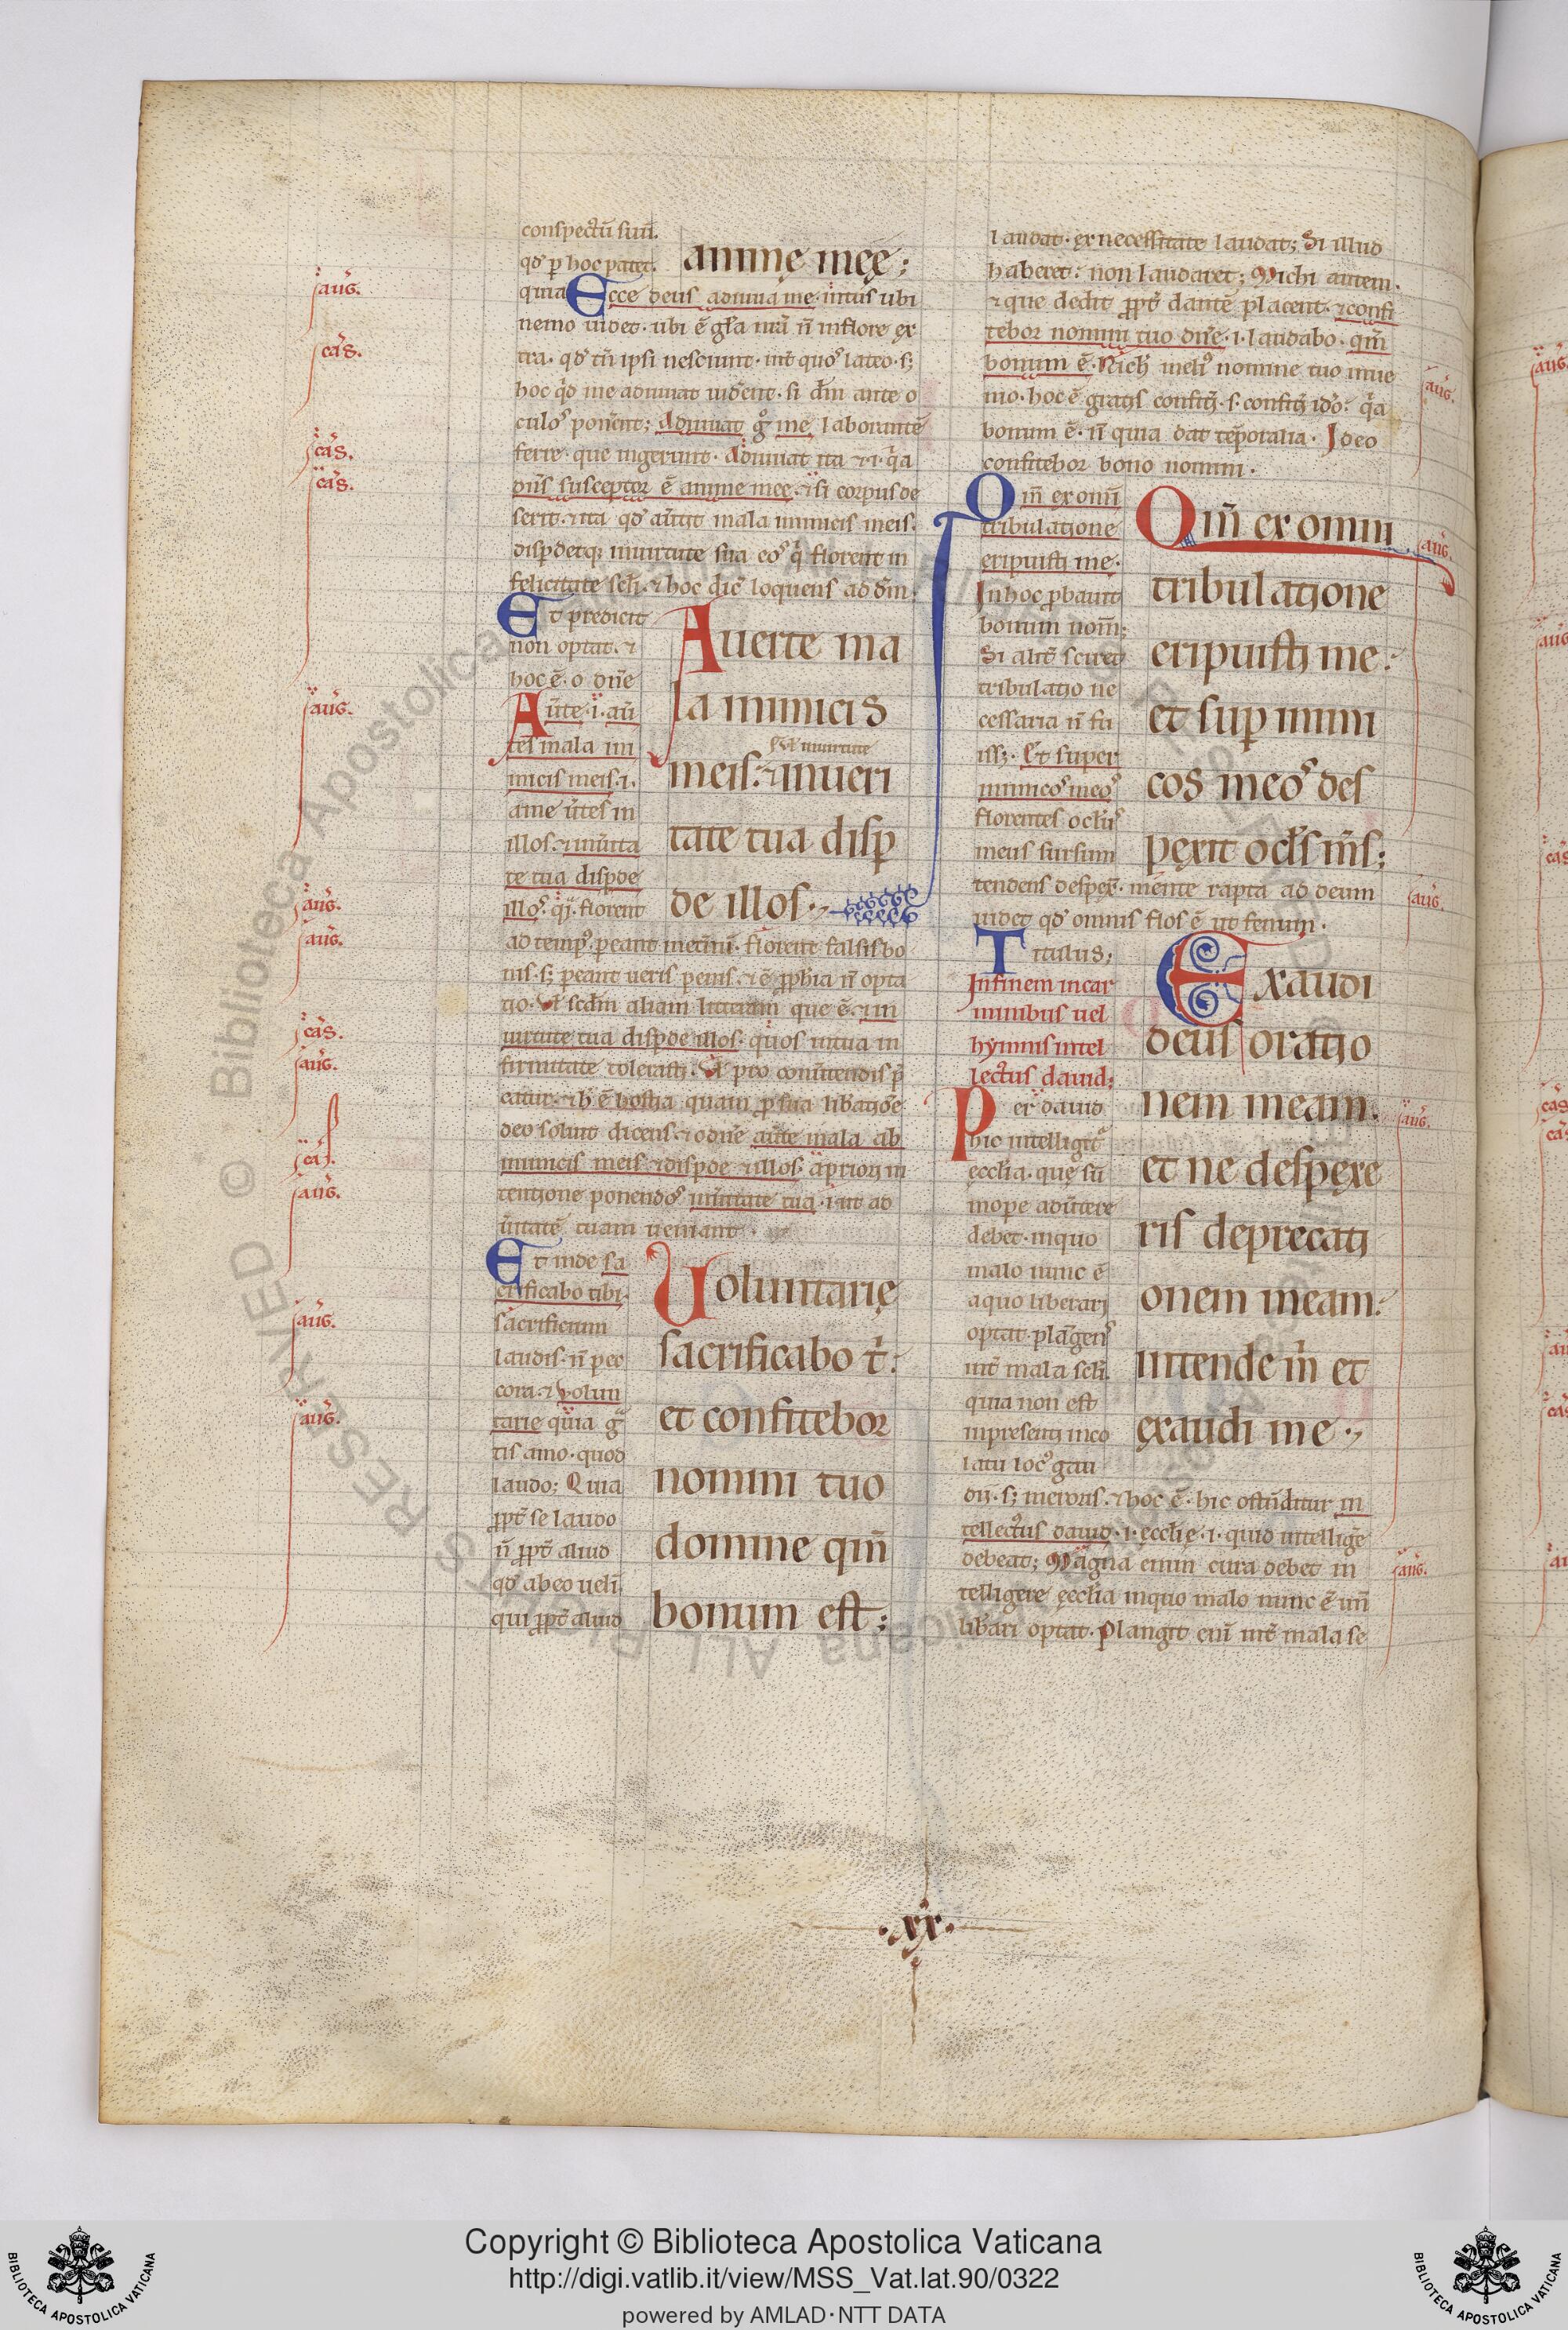 conspectū suū.
qd̄ p hoc patet.
animę męę;
quia Ecce deus adiuua me. intus ubi
nemo uidet. ubi ē gła mā n̄ in flore ex
tra. qd̄ tn̄ ipsi nesciunt. int̄ quos lateo. s;
hoc qd̄ me adiuuat uident. si dm̄ ante o
culos ponent; Adiuuat g me laborantē
ferre. que ingerunt. Adiuuat ita & i. qa
dn̄s susceptor ē anime mee. & si corpus de
serit. & ita qd̄ auertit mala inimicis meis.
disp̄detq; in uirtute sua eos q florent in
felicitate scłi. & hoc dic̄ loquens ad dm̄.
Et predicit
non optat. &
hoc ē. o dn̄e
Auerte ma
la inimicis
meis. & in ueri
tate tua disp
de illos.
Aūte .i. aū
tes mala ini
micis meis .i.
a me ūtes in
illos. & in ūita
te tua dispde
illos. qi. florent
ad temp. pereant inet̄nū. florent falsis bo
nis. s; pereant ueris penis. & ē pphia n̄ opta
tio. Vł scdm̄ aliam litteram que ē. & in
uirtute tua dispde illos. quos in tua in
firmitate tolerasti. Vł pro conūtendis p
catur. & h ē hostia quam p sua libatiōe
deo soluit dicens. & o dn̄e aūte mala ab
inimicis meis. & dispde & illos. a priori in
tentione ponendos in ūitate tua .i. ut ad
ūitatē tuam ueniant.
Et inde sa
crificabo tibi.
sacrificium
laudis. n̄ pec
cora. & volun
tarie quia g
tis amo. quod
laudo; Quia
ppt̄ se laudo
n̄ ppt̄ aliud
qd̄ ab eo ueli
qui ppt̄ aliud
Voluntarię
sacrificabo t̄:
et confitebor
nomini tuo
domine qm̄
bonum est;
laudat. ex necessitate laudat; Si illud
haberet: non laudaret; Michi autem.
& que dedit ppt̄ dantē placent. & confi
tebor nomini tuo dn̄e .i. laudabo. qm̄
bonum ē. Nich meli nomine tuo inue
nio. hoc ē gratis confitēi. s. confitēi ido: qa
bonum ē. n̄ quia dat tēporalia. Ideo
confitebor bono nomini.
Qm̄ ex omni
tribulatione
eripuisti me.
In hoc pbauit
bonum nom̄;
Si alit̄ sciret
tribulatio ne
cessaria n̄ fu
iss;. Et super
inimicos meos
florentes oclus
meus sursum
Qm̄ ex omni
tribulatione
eripuisti me:
et sup inimi
cos meos des
pexit ocłs m̄s;
tendens despex. mente rapta ad deum
uidet qd̄ omnis flos ē ut fenum.
Titulus;
In finem in car
minibus uel
hymnis intel
lectus dauid;
Exaudi
deus oratio
nem meam.
et ne despexe
ris deprecati
onem meam:
intende m̄ et
exaudi me.
Per dauid
hic intelligit
ecclia. que sū
mope aduertere
debet. in quo
malo nunc ē
a quo liberari
optat. plangens
int̄ mala scłi.
quia non est
in presenti inco
latu locus gau
dii. s; meroris. & hoc ē. hic ostenditur in
tellectus dauid .i. ecclię .i. quid intelligē
debeat; Magna enim cura debet in
telligere ecclia in quo malo nunc ē un̄
libari optat. Plangit enī int̄ mala se
aug.
cas.
cas.
cas.
aug.
aug.
aug.
cas.
aug.
cas.
aug.
aug.
aug.
aug.
aug.
aug.
aug.
aug.
.xx.
Copyright © Biblioteca Apostolica Vaticana
http://digi.vatlib.it/view/MSS_Vat.lat.90/0322
powered by AMLAD·NTT DATA
BIBLIOTECA APOSTOLICA VATICANA
BIBLIOTECA APOSTOLICA VATICANA